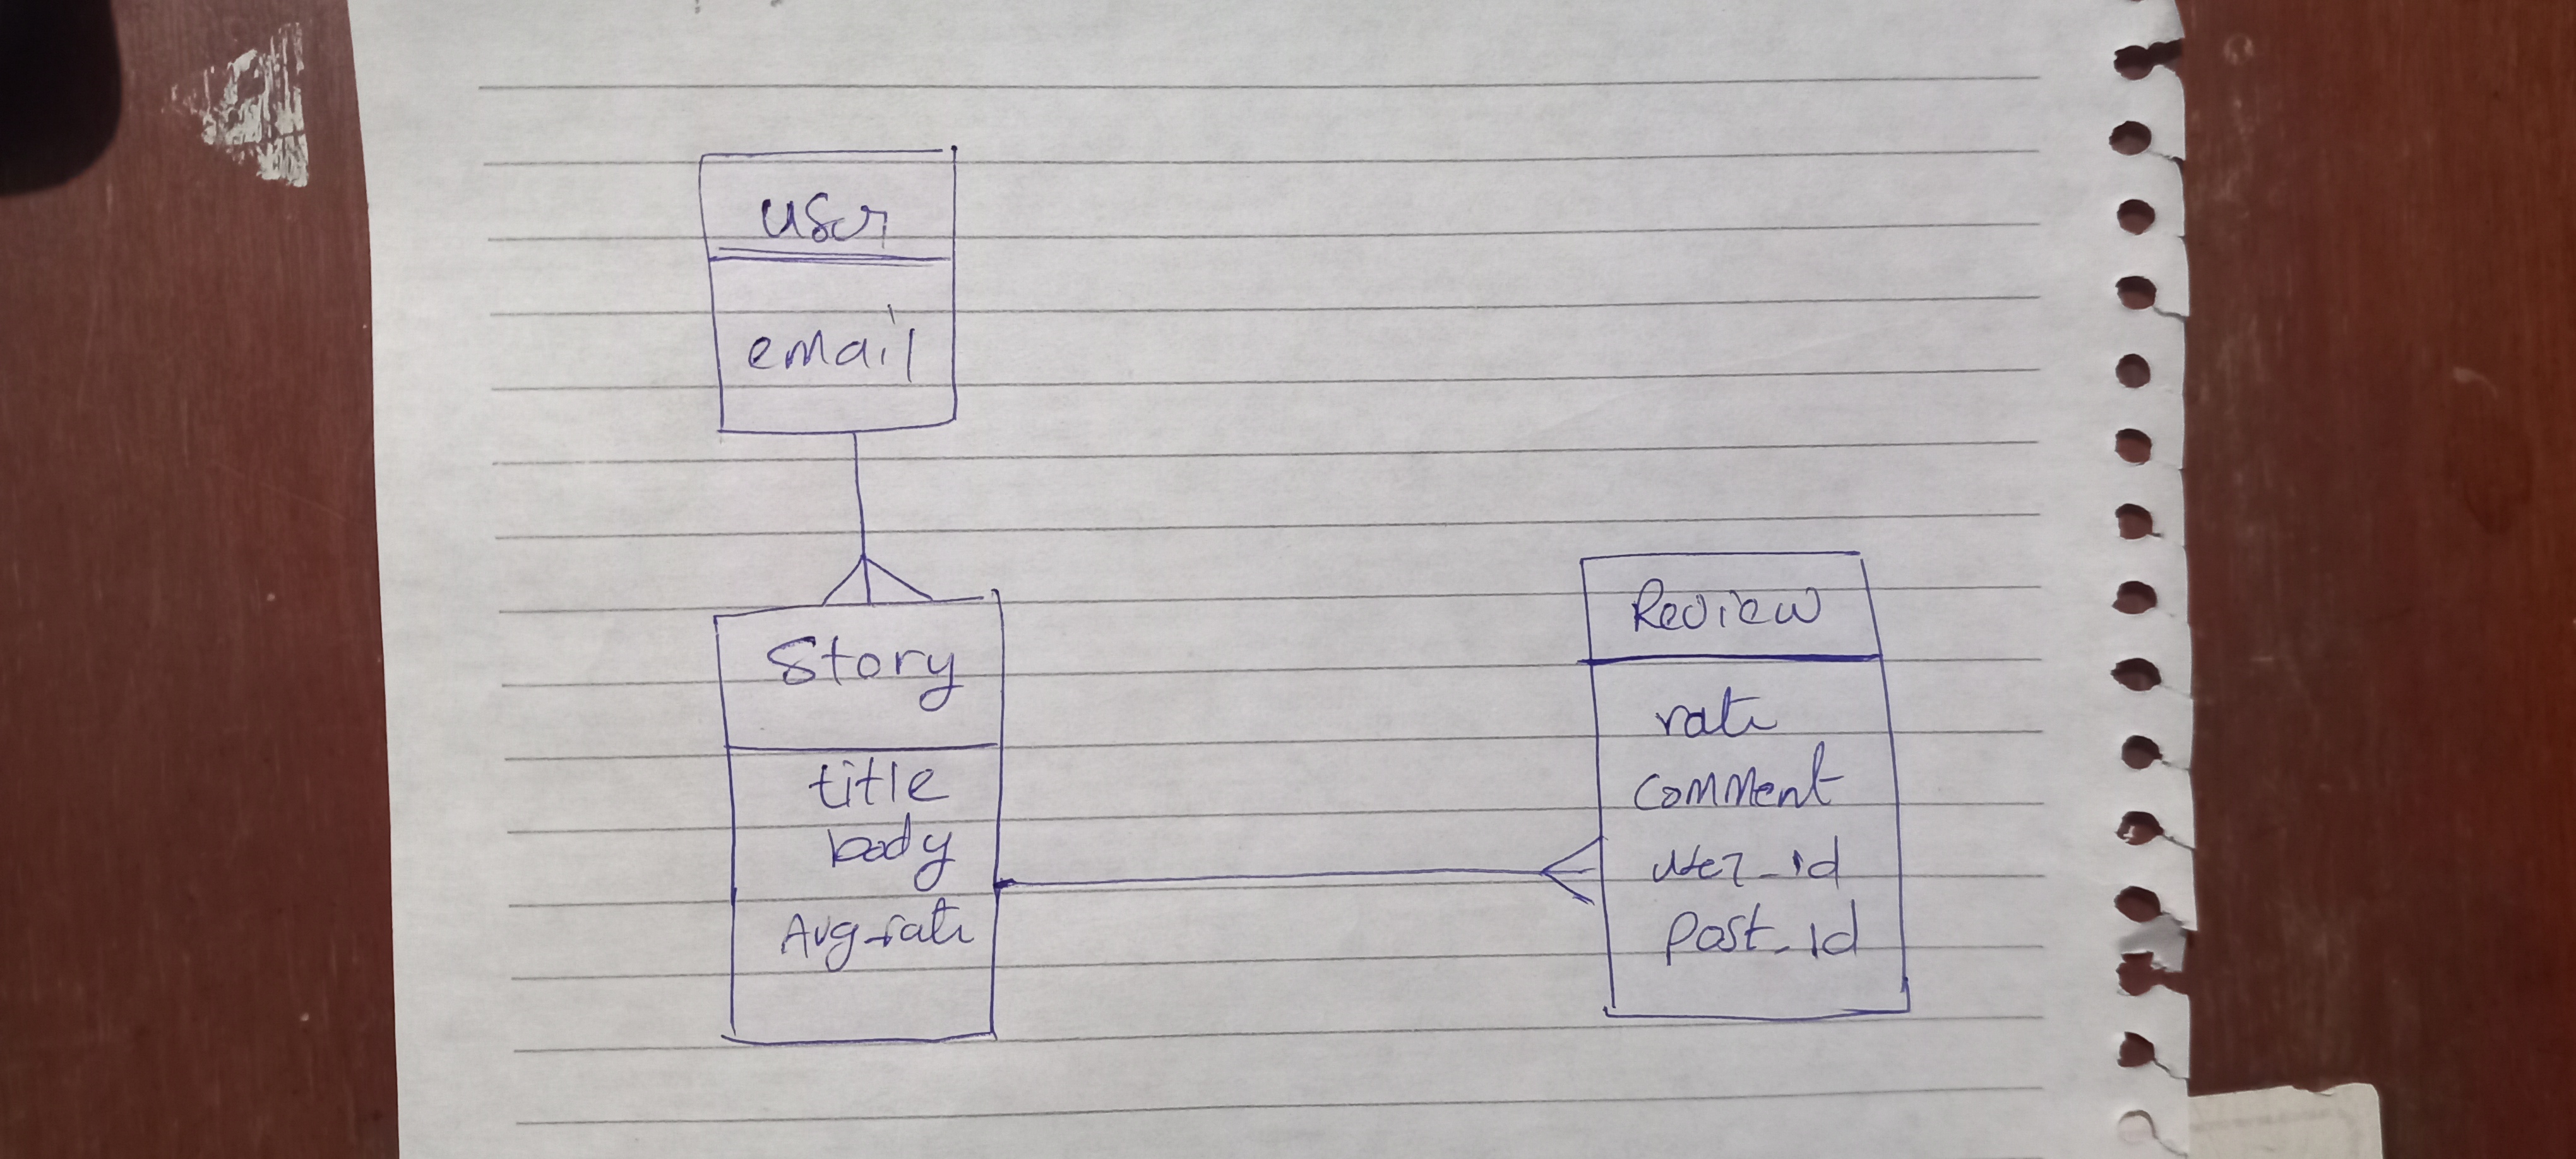 User
email
Story
title
body
Avg-rate
Review
rate
comment
user_id
Post_id